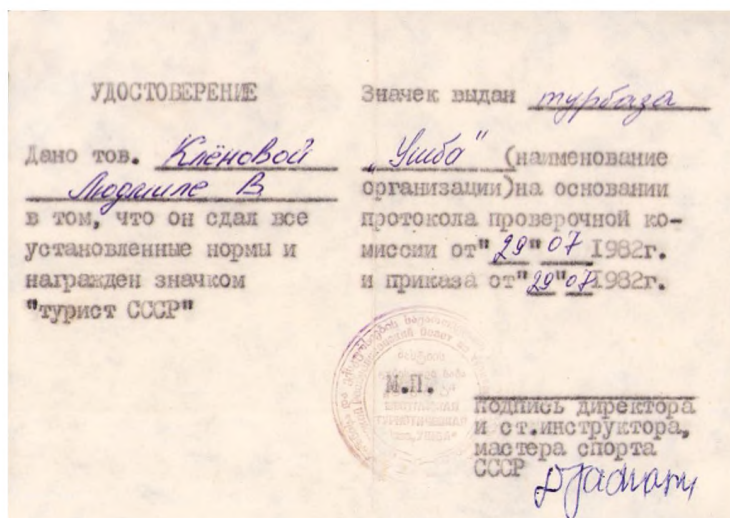 УДОСТОВЕРЕНИЕ
Дано тов. Клёновой
Людмиле В
в том, что он сдал все
установленные нормы и
награжден значком
"турист СССР"
Значек выдан турбаза
„Ушба" (наименование
организации) на основании
протокола проверочной ко-
миссии от "29" 07 1982г.
и приказа от "29" 07 1982г.
М.П.
подпись директора
и ст.инструктора,
мастера спорта
СССР